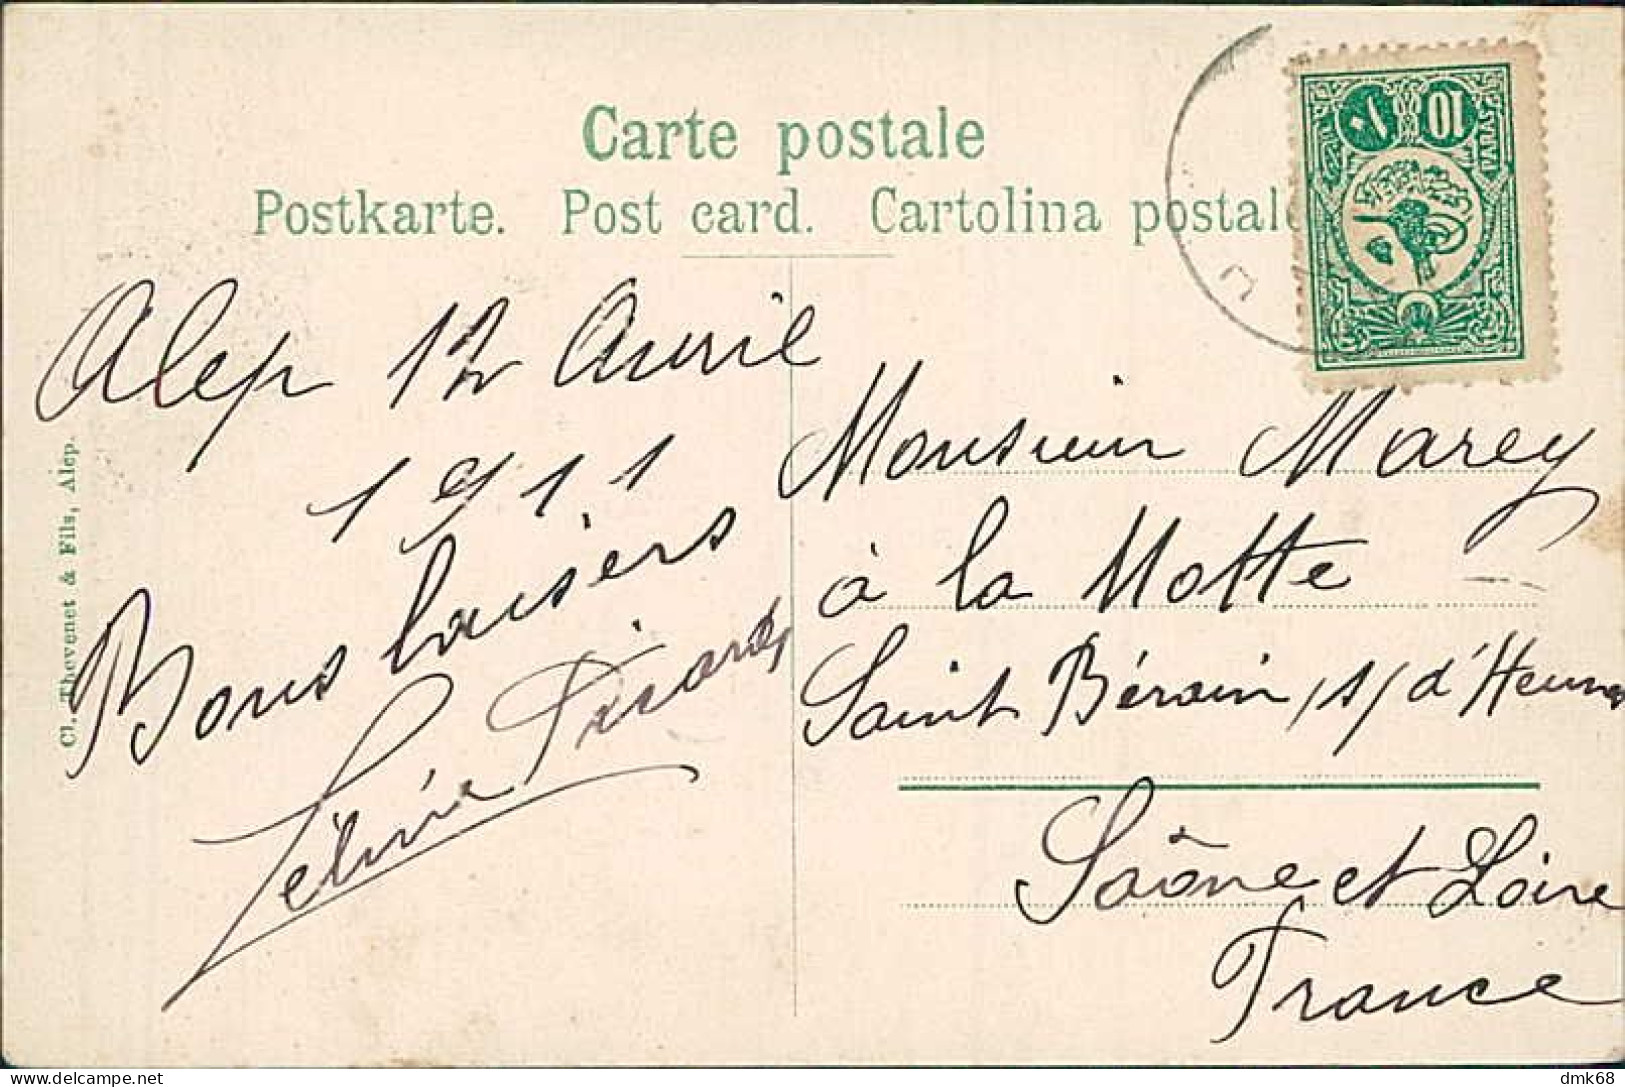 Carte postale
Postkarte. Post card. Cartolina postale
10
١٠
PARAS
Alep 12 Avril
1911
Bons baisers
Monsieur Marey
à la Motte
Saint Bérain s/ d'Heune
Saône et Loire
France
Cl. Thevenet & Fils, Alep.
delcampe.net
dmk68